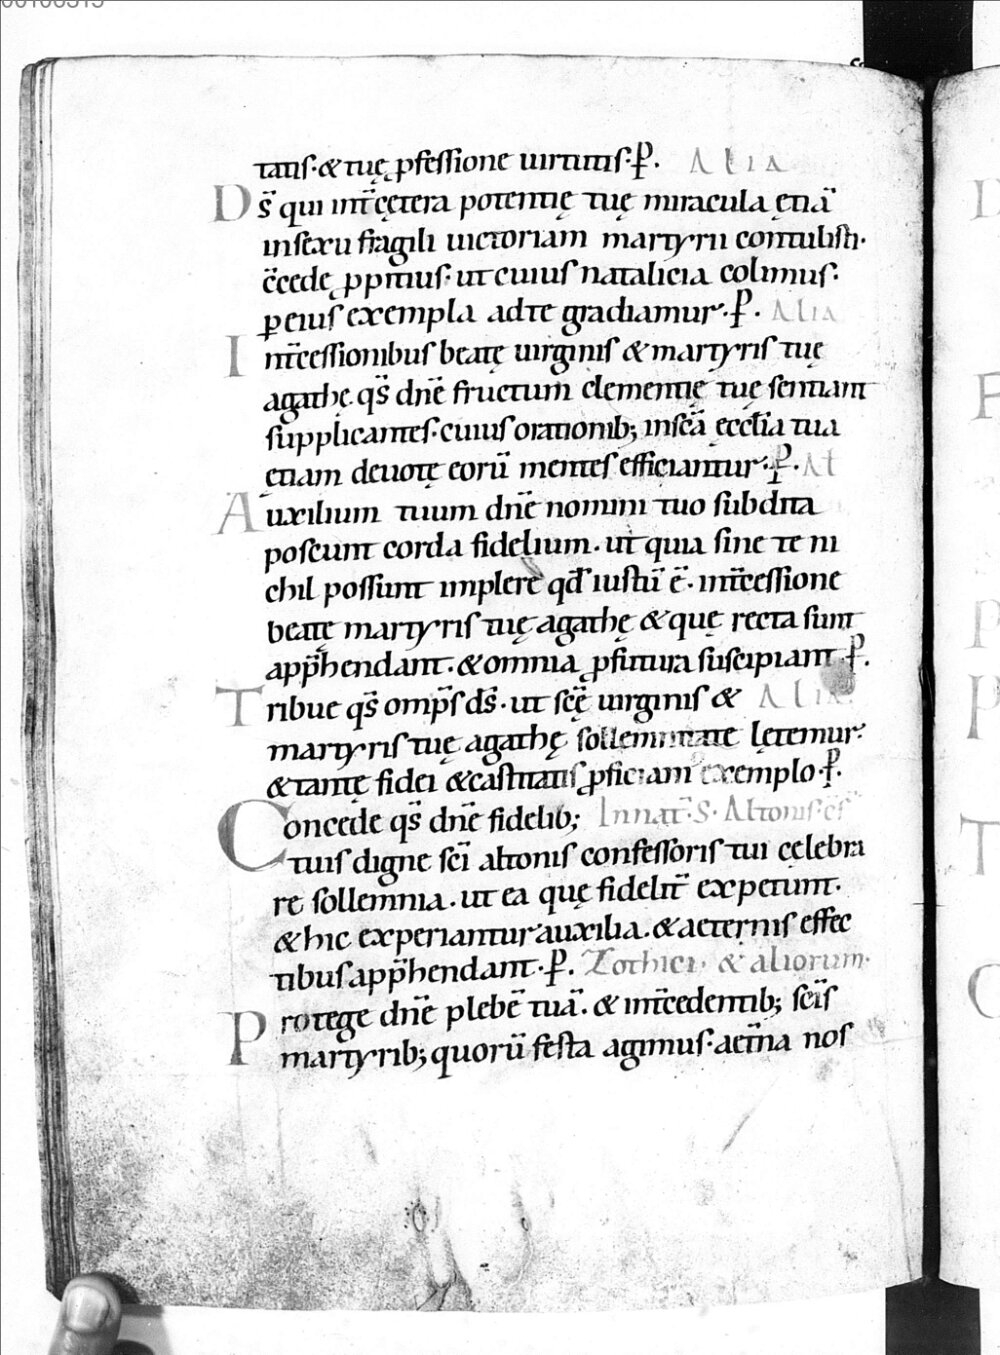 tatis·&tuę ꝓfessione uirtutis·P̱. Alia
Ds̄ qui int̄ cętera potentię tuę miracula ętiā
insexu fragili uictoriam martyrii contulisti·
c̄cede ꝓpitius· ut cuius natalicia colimus·
ꝑ eius exempla adte gradiamur·P̱· Alia
Int̄cessionibus beatę uirginis & martyris tuę
agathę qs̄ dnē fructum clementię tuę sentiant
supplicantes· cuius orationib; inscā ęcclīa tua
ętiam deuotę eorū mentes efficiantur·P̱· Al
Auxilium tuum dnē nomini tuo subdita
poscunt corda fidelium· ut quia sine te ni
chil possunt implere qd̄ iustū ē· int̄cessione
beatę martyris tuę agathę & quę recta sunt
app̄hendant· & omnia ꝓfutura suscipiant P̱.
Tribue qs̄ omp̄s ds̄· ut scę̄ uirginis & Alia
martyris tuę agathę sollemnitate lętemur·
& tantę fidei & castitatis ꝓficiam exemplo·P̱.
Concede qs̄ dnē fidelib; Innat̄·S· Altonis·cf̄
tuis digne scī altonis confessoris tui cęlebra
re sollemnia· ut ea quę fidelit̄ expetunt·
& hic experiantur auxilia· & aeternis effec
tibus app̄hendant·P̱. Zothici· & aliorum·
Protege dnē plebē tuā· & int̄cedentib; scīs
martyrib; quorū festa agimus· aet̄na nos